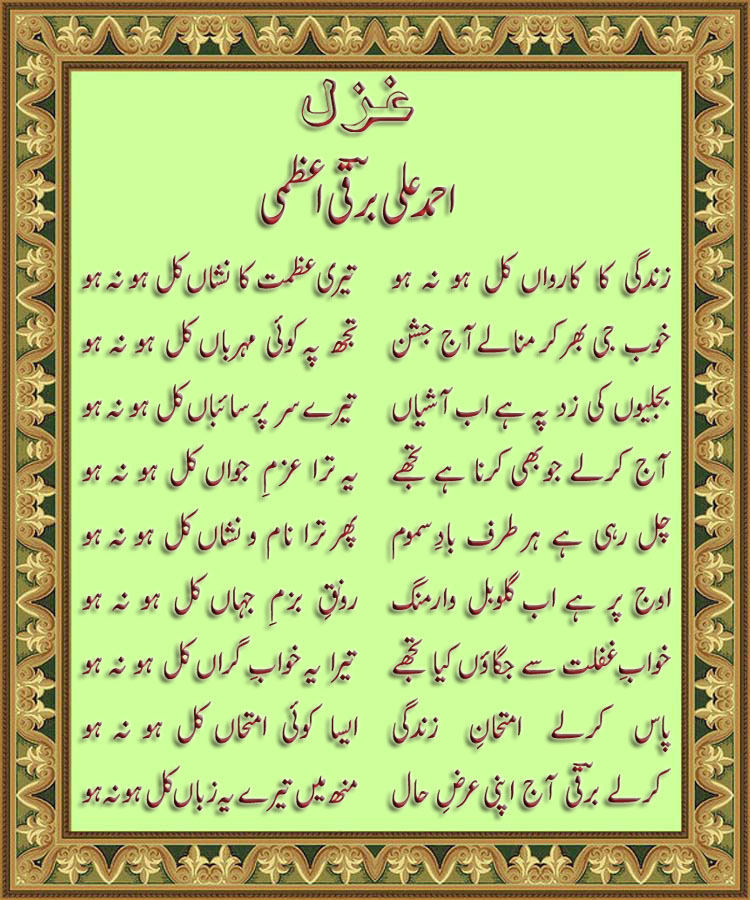 غزل
احمد علی برقیؔ اعظمی
زندگی کا کارواں کل ہو نہ ہو تیری عظمت کا نشاں کل ہو نہ ہو
خوب جی بھر کر منالے آج جشن تجھ پہ کوئی مہرباں کل ہو نہ ہو
بجلیوں کی زد پہ ہے اب آشیاں تیرے سر پر سائباں کل ہو نہ ہو
آج کرلے جو بھی کرنا ہے تجھے یہ ترا عزمِ جواں کل ہو نہ ہو
چل رہی ہے ہر طرف بادِ سموم پھر ترا نام و نشاں کل ہو نہ ہو
اوج پر ہے اب گلوبل وارمنگ رونقِ بزمِ جہاں کل ہو نہ ہو
خوابِ غفلت سے جگاؤں کیا تجھے تیرا یہ خوابِ گراں کل ہو نہ ہو
پاس کرلے امتحانِ زندگی ایسا کوئی امتحاں کل ہو نہ ہو
کرلے برقیؔ آج اپنی عرضِ حال منھ میں تیرے یہ زباں کل ہو نہ ہو